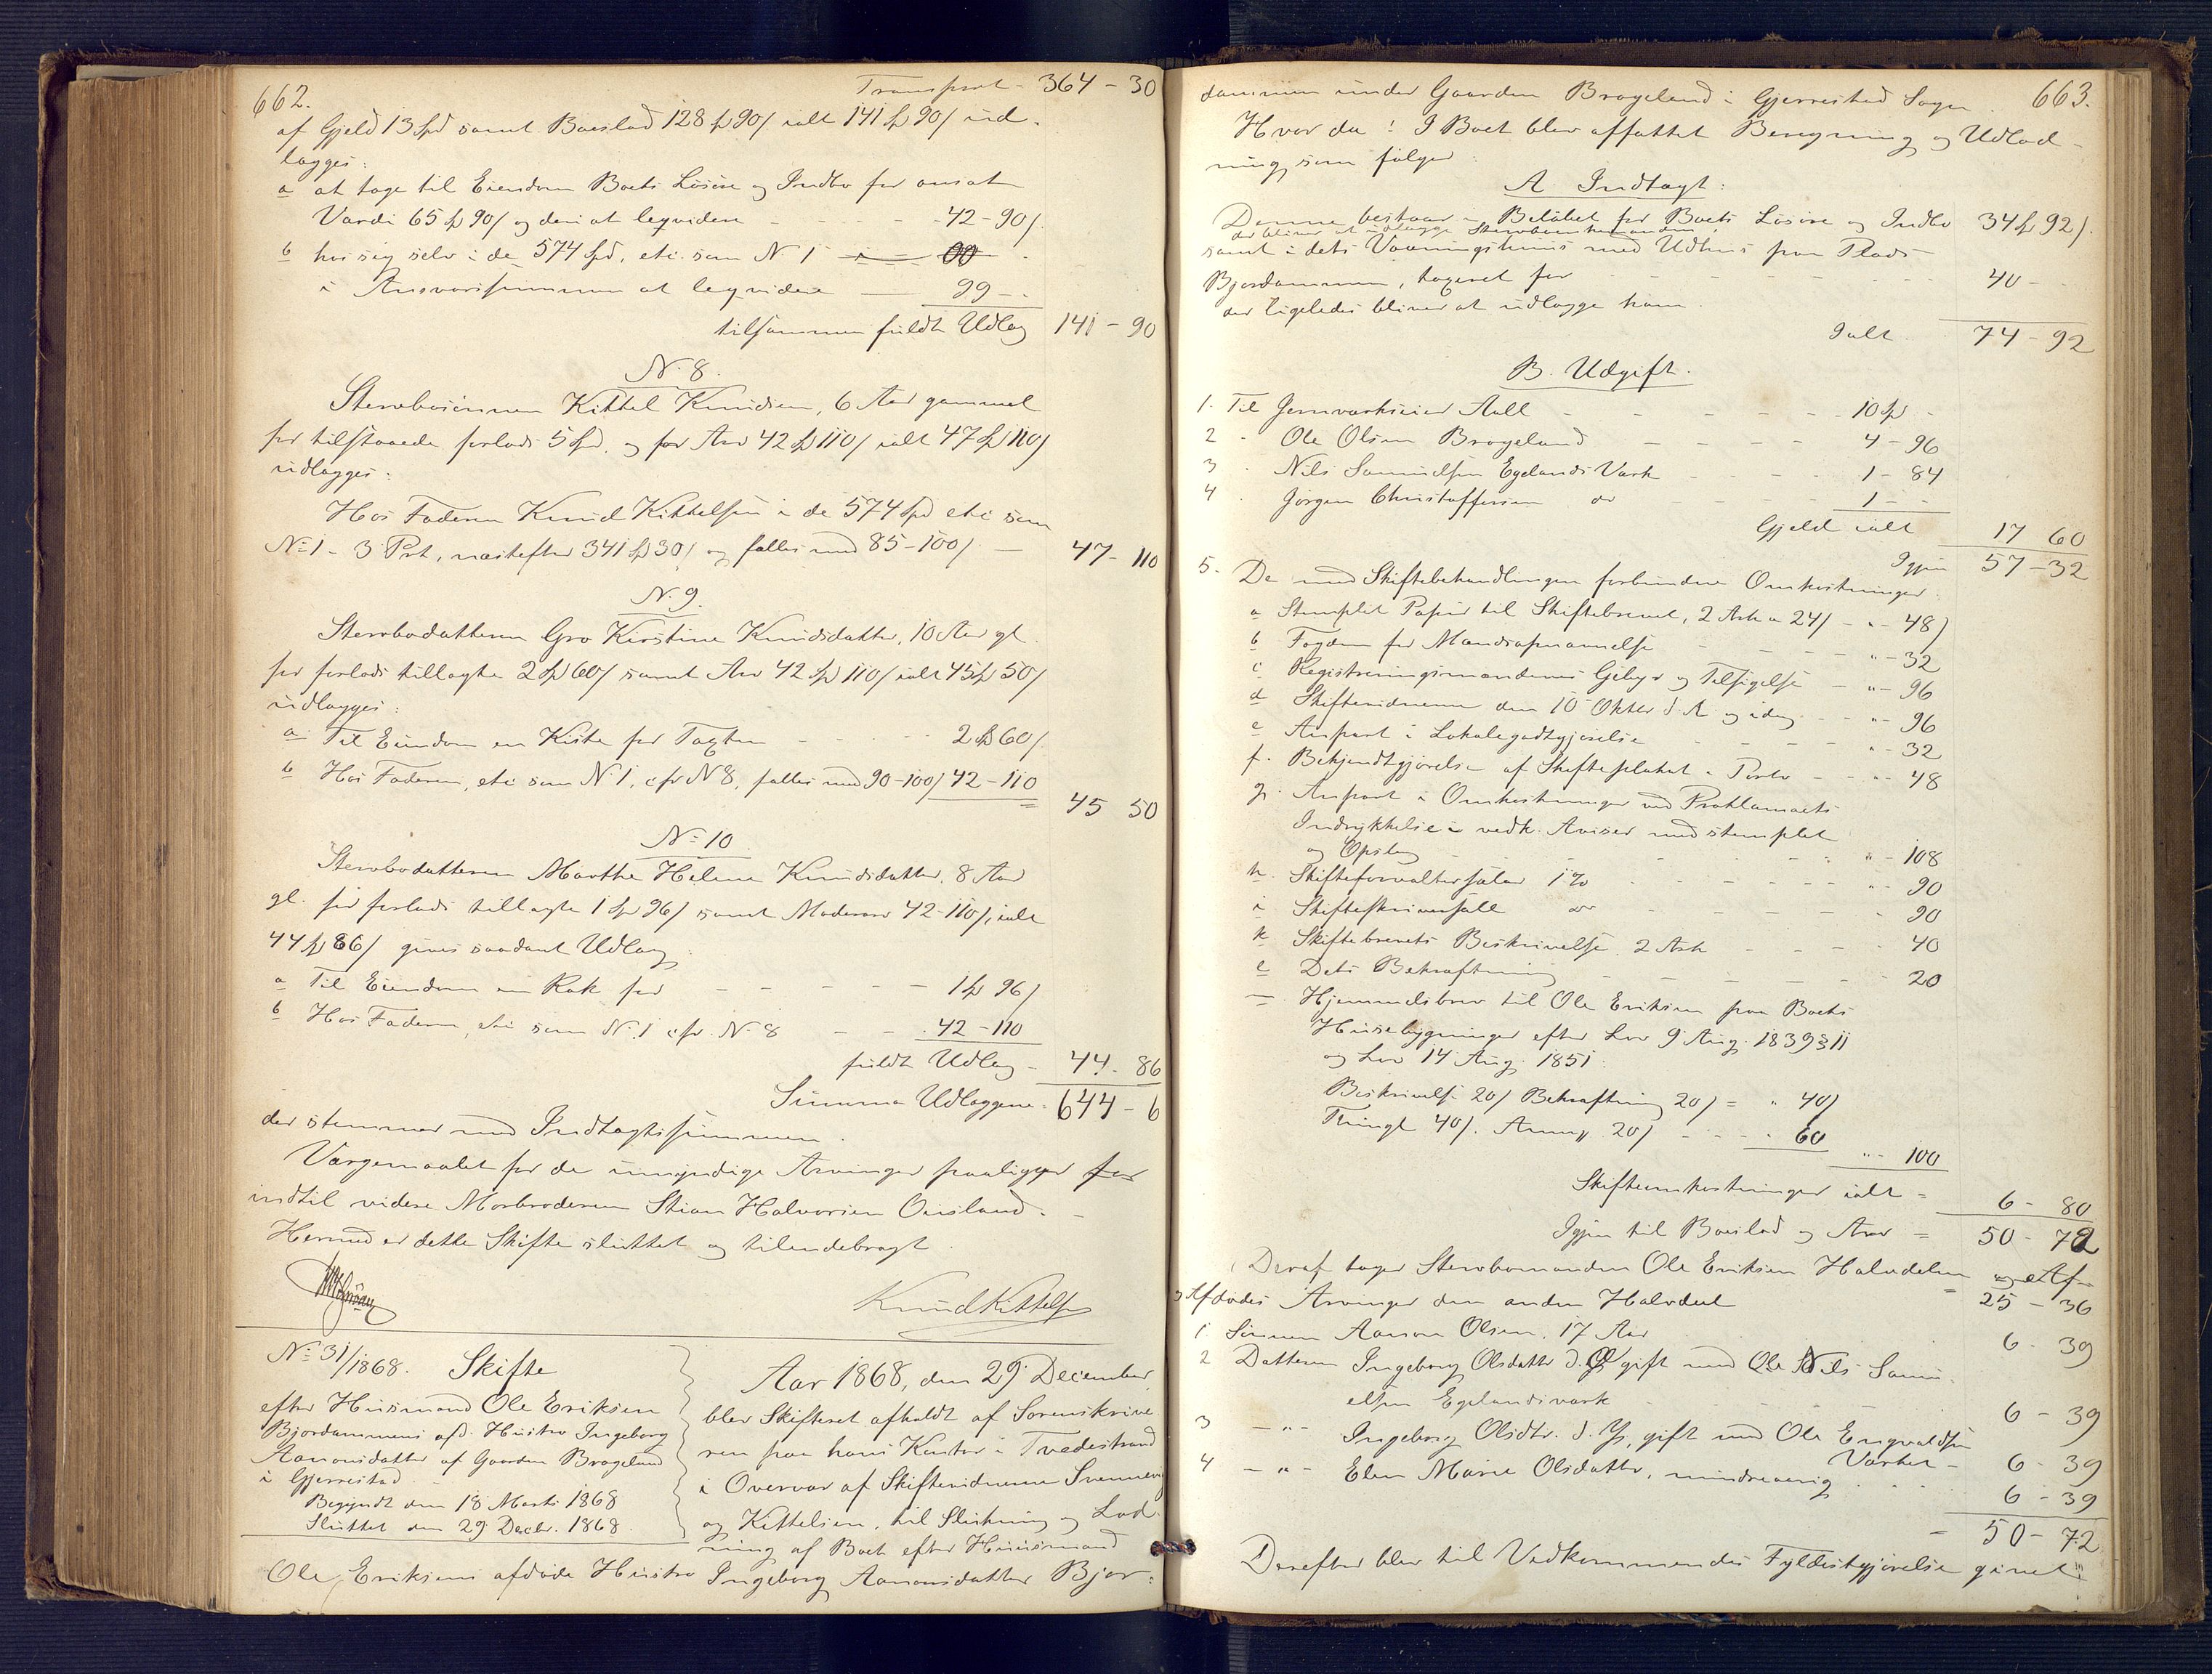 662.
Transport - 364 - 30
af Gjeld 13 Spd samt Boeslod 128 Sp 90/ ialt 141 Sp 90/ ud-
lægges:
a at tage til Eiendom Boets Løsøre og Indbo for ansat
Værdi 65 Sp 90/ og deri at leqvidere - - - - 42 - 90/.
b hos sig selv i de 574 Spd, etc. som No 1
i Ansvarssummen at leqvidere — 99 -
tilsammen fuldt Udlæg 141 - 90
No 8.
Stervbosønnen Kittel Knudsen, 6 Aar gammel
for tilstaaede forlods 5 Spd. og for Arv 42 Sp 110/ ialt 47 Sp 110/
udlægges:
Hos Faderen Knud Kittelsen i de 574 Spd etc som
No 1 - 3 Prt., næstefter 341 Sp 30/ og falles med 85-100/ — 47 - 110
No 9.
Stervbodatteren Gro Kirstine Knudsdatter, 10 Aar gl.
for forlods tillagte 2 Sp 60/ samt Arv 42 Sp 110/ ialt 45 Sp 50/
udlægges:
a. Til Eiendom en Kiste for Taxten - - - - 2 Sp 60/.
b Hos Faderen, etc som No 1, cfr No 8, falles med 90-100/ 42 - 110
45 50
No 10
Stervbodatteren Marthe Helene Knudsdatter, 8 Aar
gl. for forlods tillagte 1 Sp 96/ samt Moderarv 42-110/, ialt
44 Sp 86/ gives saadant Udlæg:
a Til Eiendom en Kak for - - - - 1 Sp 96/
b Hos Faderen, etc som No 1 cfr. No 8 - - 42 - 110
fuldt Udlæg - 44. 86
Summa Udlæggene - 644 - 6
der stemmer med Indtægtssummen.
Værgemaalet for de umyndige Arvinger paaligger for
indtil videre Morbroderen Stian Halvorsen Ousland. -
Hermed er dette Skifte sluttet og tilendebragt.
Knud Kittelsen
No 31/1868. Skifte
efter Huusmand Ole Eriksen
Bjordammens afd. Hustro Ingeborg
Aanonsdatter af Gaarden Brøgeland
i Gjerrestad
Begyndt den 18 Marts 1868
Sluttet den 29 Decbr. 1868.
Aar 1868, den 29 December,
blev Skifteret afholdt af Sorenskrive
ren paa hans Kontor i Tvedestrand
i Overvær af Skiftevidnerne Svennevig
og Kittelsen, til Slutning og Lod-
ning af Boet efter Huusmand
Ole Eriksens afdøde Hustro Ingeborg Aanonsdatter Bjor-
663.
dammen under Gaarden Brøgeland i Gjerrestad Sogn.
Hvor da: I Boet blev affattet Beregning og Udlod-
ning som følger:
A Indtægt:
Denne bestaar i Beløbet for Boets Løsøre og Indbo 34 Sp 92/.
der bliver at udlægge Stervbomanden,
samt i dets Vaaningshuus med Udhuus paa Plads
Bjordammen, taxeret for - - - - 40 -
der ligeledes bliver at udlægge ham.
Ialt 74 - 92
B. Udgift.
1. Til Jernværkseier Aall - - - - 10 Sp -
2 - Ole Olsen Brøgeland - - - - 4 - 96
3 - Nils Samuelsen Egelands Værk - - - 1 - 84
4 - Jørgen Christoffersen do - - - 1 -
Gjeld ialt 17 60
Igjen 57 - 32
5. De med Skiftebehandlingen forbundne Omkostninger:
a Stemplet Papir til Skiftebrevet, 2 Ark a 24/ - " - 48/
b Fogden for Mandsopnævnelse - - - - " - 32
c Registreringsmændenes Gebyr og Tilsigelse - " - 96
d Skiftevidnerne den 10 Oktbr d. A. og idag - - " - 96
e Anpart i Lokalegodtgjørelse - - - - " - 32
f. Bekjendtgjørelse af Skifteplakat & Porto - - " - 48
g. Anpart i Omkostninger ved Proklamaets
Indrykkelse i vedk. Aviser med stemplet
og Opslag - - - - " - 108
h. Skifteforvaltersalær 1% - - - - " - 90
i Skifteskriversalær do - - - - 90
k Skiftebrevets Beskrivelse, 2 Ark - - - 40
l Dets Bekræftning - - - - 20
— Hjemmelsbrev til Ole Eriksen paa Boets
Huusebygninger efter Lov 9 Aug. 1839 § 11
og Lov 14 Aug. 1851:
Beskrivelse 20/ Bekræftning 20/ = " 40/
Thingl 40/. Anm. 20/ - - - 60
" - 100
Skifteomkostninger ialt = 6 - 80
Igjen til Boeslod og Arv = 50 - 72
Deraf tager Stervbomanden Ole Eriksen Halvdelen
og Afdødes Arvinger den anden Halvdeel = 25 - 36
1. Sønnen Aanon Olsen, 17 Aar 6 - 39
2 Datteren Ingeborg Olsdatter d. Æ gift med Ole Nils Samu-
elsen Egelandsværk - - - 6 - 39
3 - " - Ingeborg Olsdtr. d. Y., gift med Ole Engvaldsen
Værket - 6 - 39
4 - " - Elen Marie Olsdatter, mindreaarig - - - 6 - 39
= 50 - 72
Derefter blev til Vedkommendes Fyldestgjørelse givet: